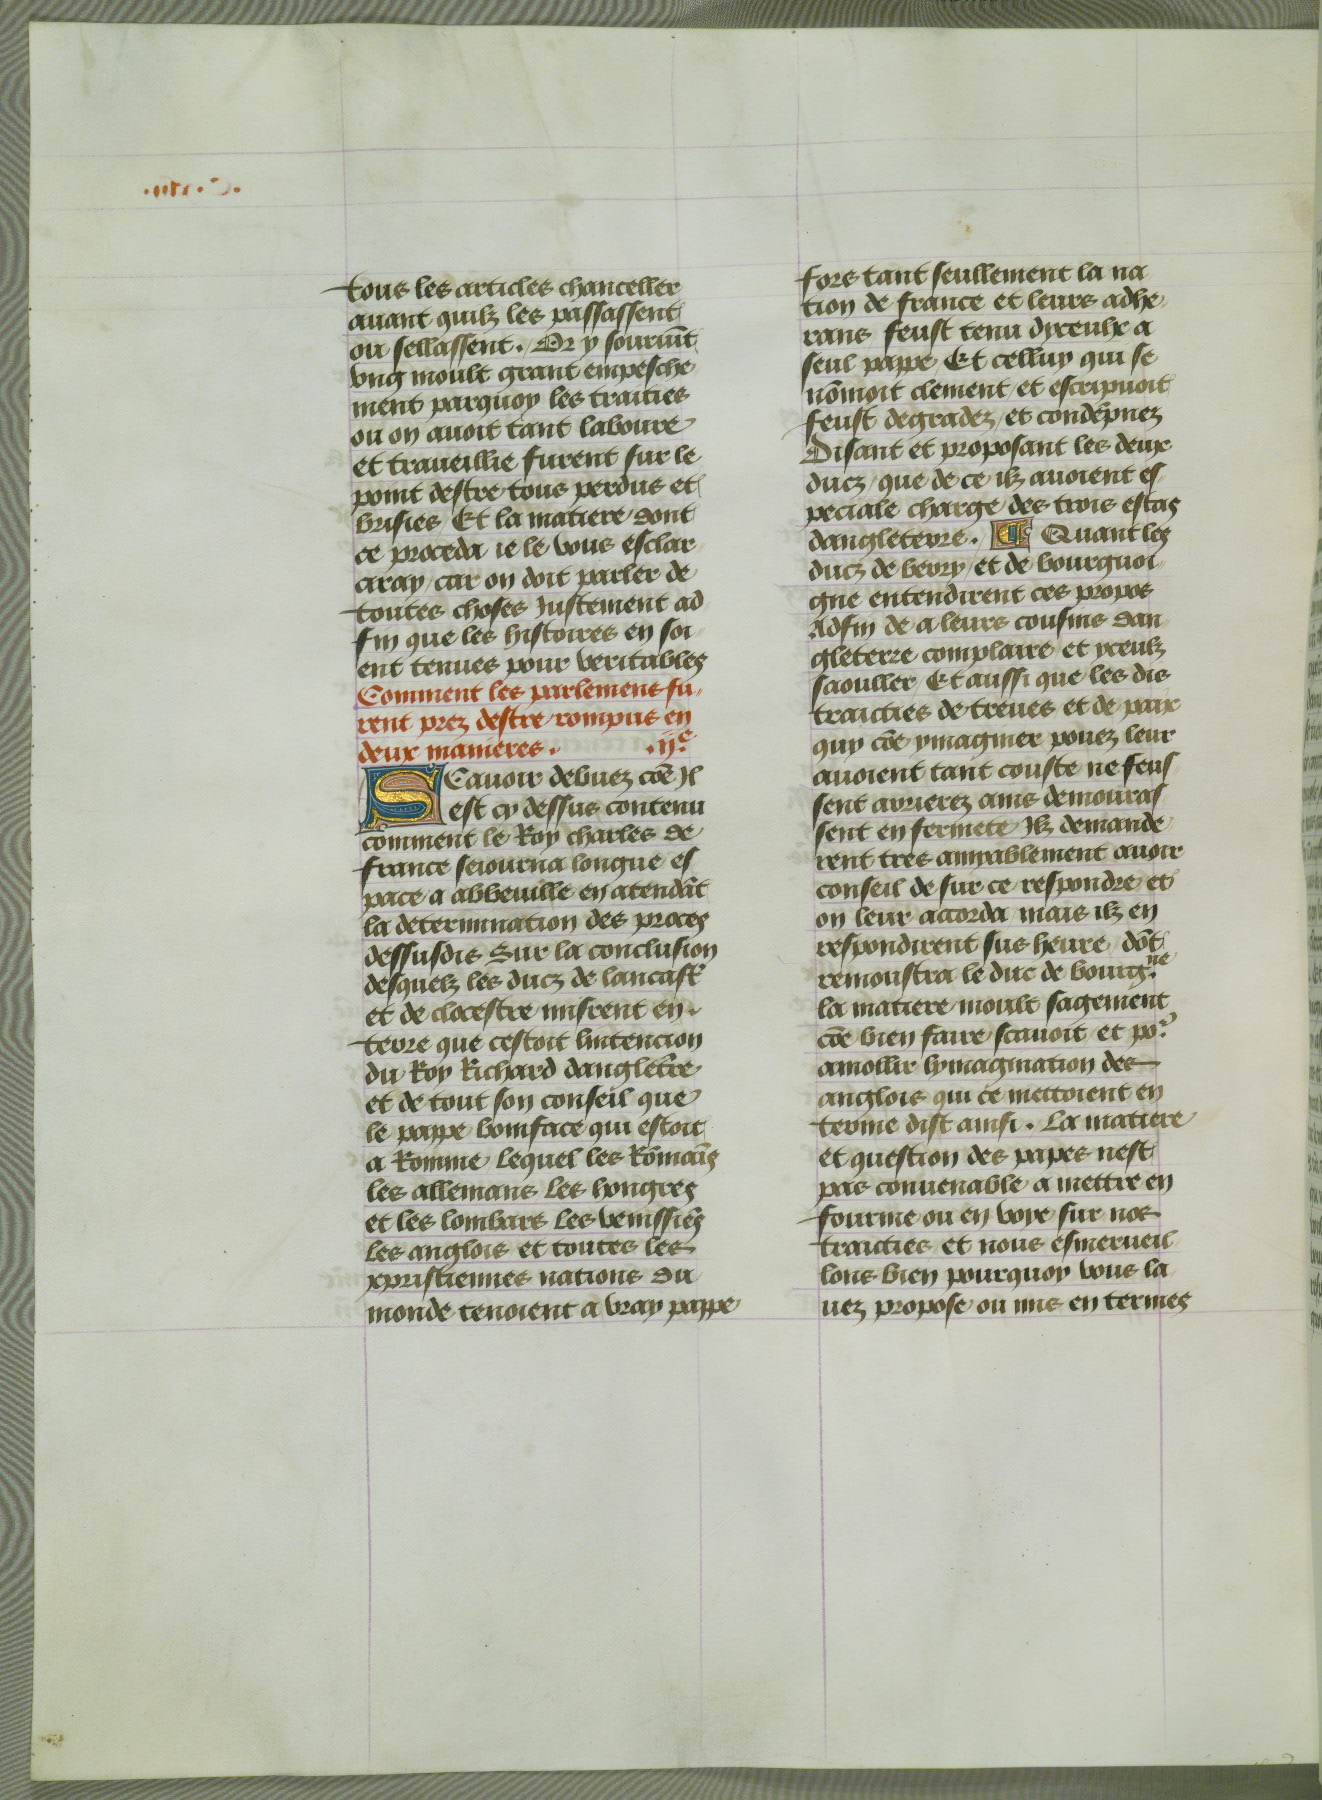 tous les articles chanceller
auant quilz les passassent
ou sellassent. Or y souruīt
vng moult grant empesche
ment parquoy les traities
ou on auoit tant laboure
et traueillie furent sur le
point destre tous perdus et
brisies Et la matiere dont
ce proceda ie le vous esclar
ciray car on doit parler de
toutes choses Justement ad
fin que les histoires en soi
ent tenues pour veritables
Comment les parlemens fu
rent prez destre rompus en
deux manieres. .ije.
Scauoir debuez cōe Il
est cy dessus contenu
comment le Roy charles de
france seiourna longue es
pace a abbeuille en atendāt
la determination des proces
dessusdis Sur la conclusion
desquelz les ducz de lancastr
et de clocestre misrent en
terre que cestoit lintencion
du Roy Richard dangletrē
et de tout son conseil que
le pappe boniface qui estoit
a Romme Lequel les Rōmaīs
les allemans Les hongres
et les lombars Les venissiēs
Les anglois et toutes les
xpristiennes nations du
monde tenoient a vray pappe
fors tant seullement la na
tion de france et leurs adhe
rans feust tenu dyceulx a
seul pappe Et celluy qui se
nōmoit clement et escripuoit
feust degradez et condēpnez
Disant et proposant les deux
ducz que de ce ilz auoient es
peciale charge des trois estas
dangleterre. ¶ Quant les
ducz de berry et de bourguoi
gne entendirent ces propos
Adfin de a leurs cousins dan
gleterre complaire et yceulz
saouller Et aussi que les dis
traicties de treues et de paix
quy cōe ymaginer pouez leur
auoient tant couste ne feus
sent arrierez ains demouras
sent en fermete Ilz demande
rent tres amyablement auoir
conseil de sur ce respondre et
on leur accorda mais ilz en
respondirent sus heure dōt
remoustra le duc de bourg.ne
la matiere moult sagement
cōe bien faire scauoit et por
amollir lymagination des
anglois qui ce mettoient en
terme dist ainsi. La matiere
et question des papes nest
pas conuenable a mettre en
fourme ou en voye sur nos
traicties et nous esmerueil
lons bien pourquoy vous la
uez propose ou mis en termes